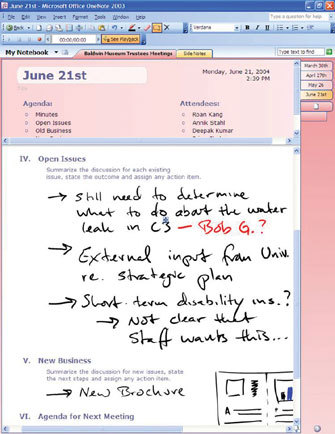 June 21st - Microsoft Office OneNote 2003
File Edit View Insert Format Tools Table Window Help
Type a question for help
Back
Verdana
B I U
00:00/00:00
See Playback
My Notebook
Baldwin Museum Trustees Meetings
Side Notes
Type text to find
March 30th
April 27th
May 26
June 21st
June 21st
Monday, June 21, 2004
2:30 PM
Agenda:
Minutes
Open Issues
Old Business
Attendees:
Roan Kang
Annik Stahl
Deepak Kumar
IV. Open Issues
Summarize the discussion for each existing
issue, state the outcome and assign any action item.
→ Still need to determine
what to do about the water
leak in C3 — Bob G.?
→ External input from Univ.
re. strategic plan
→ Short-term disability ins.?
→ Not clear that
staff wants this...
V. New Business
Summarize the discussion for new issues, state
the next steps and assign any action item.
→ New Brochure
A
VI. Agenda for Next Meeting